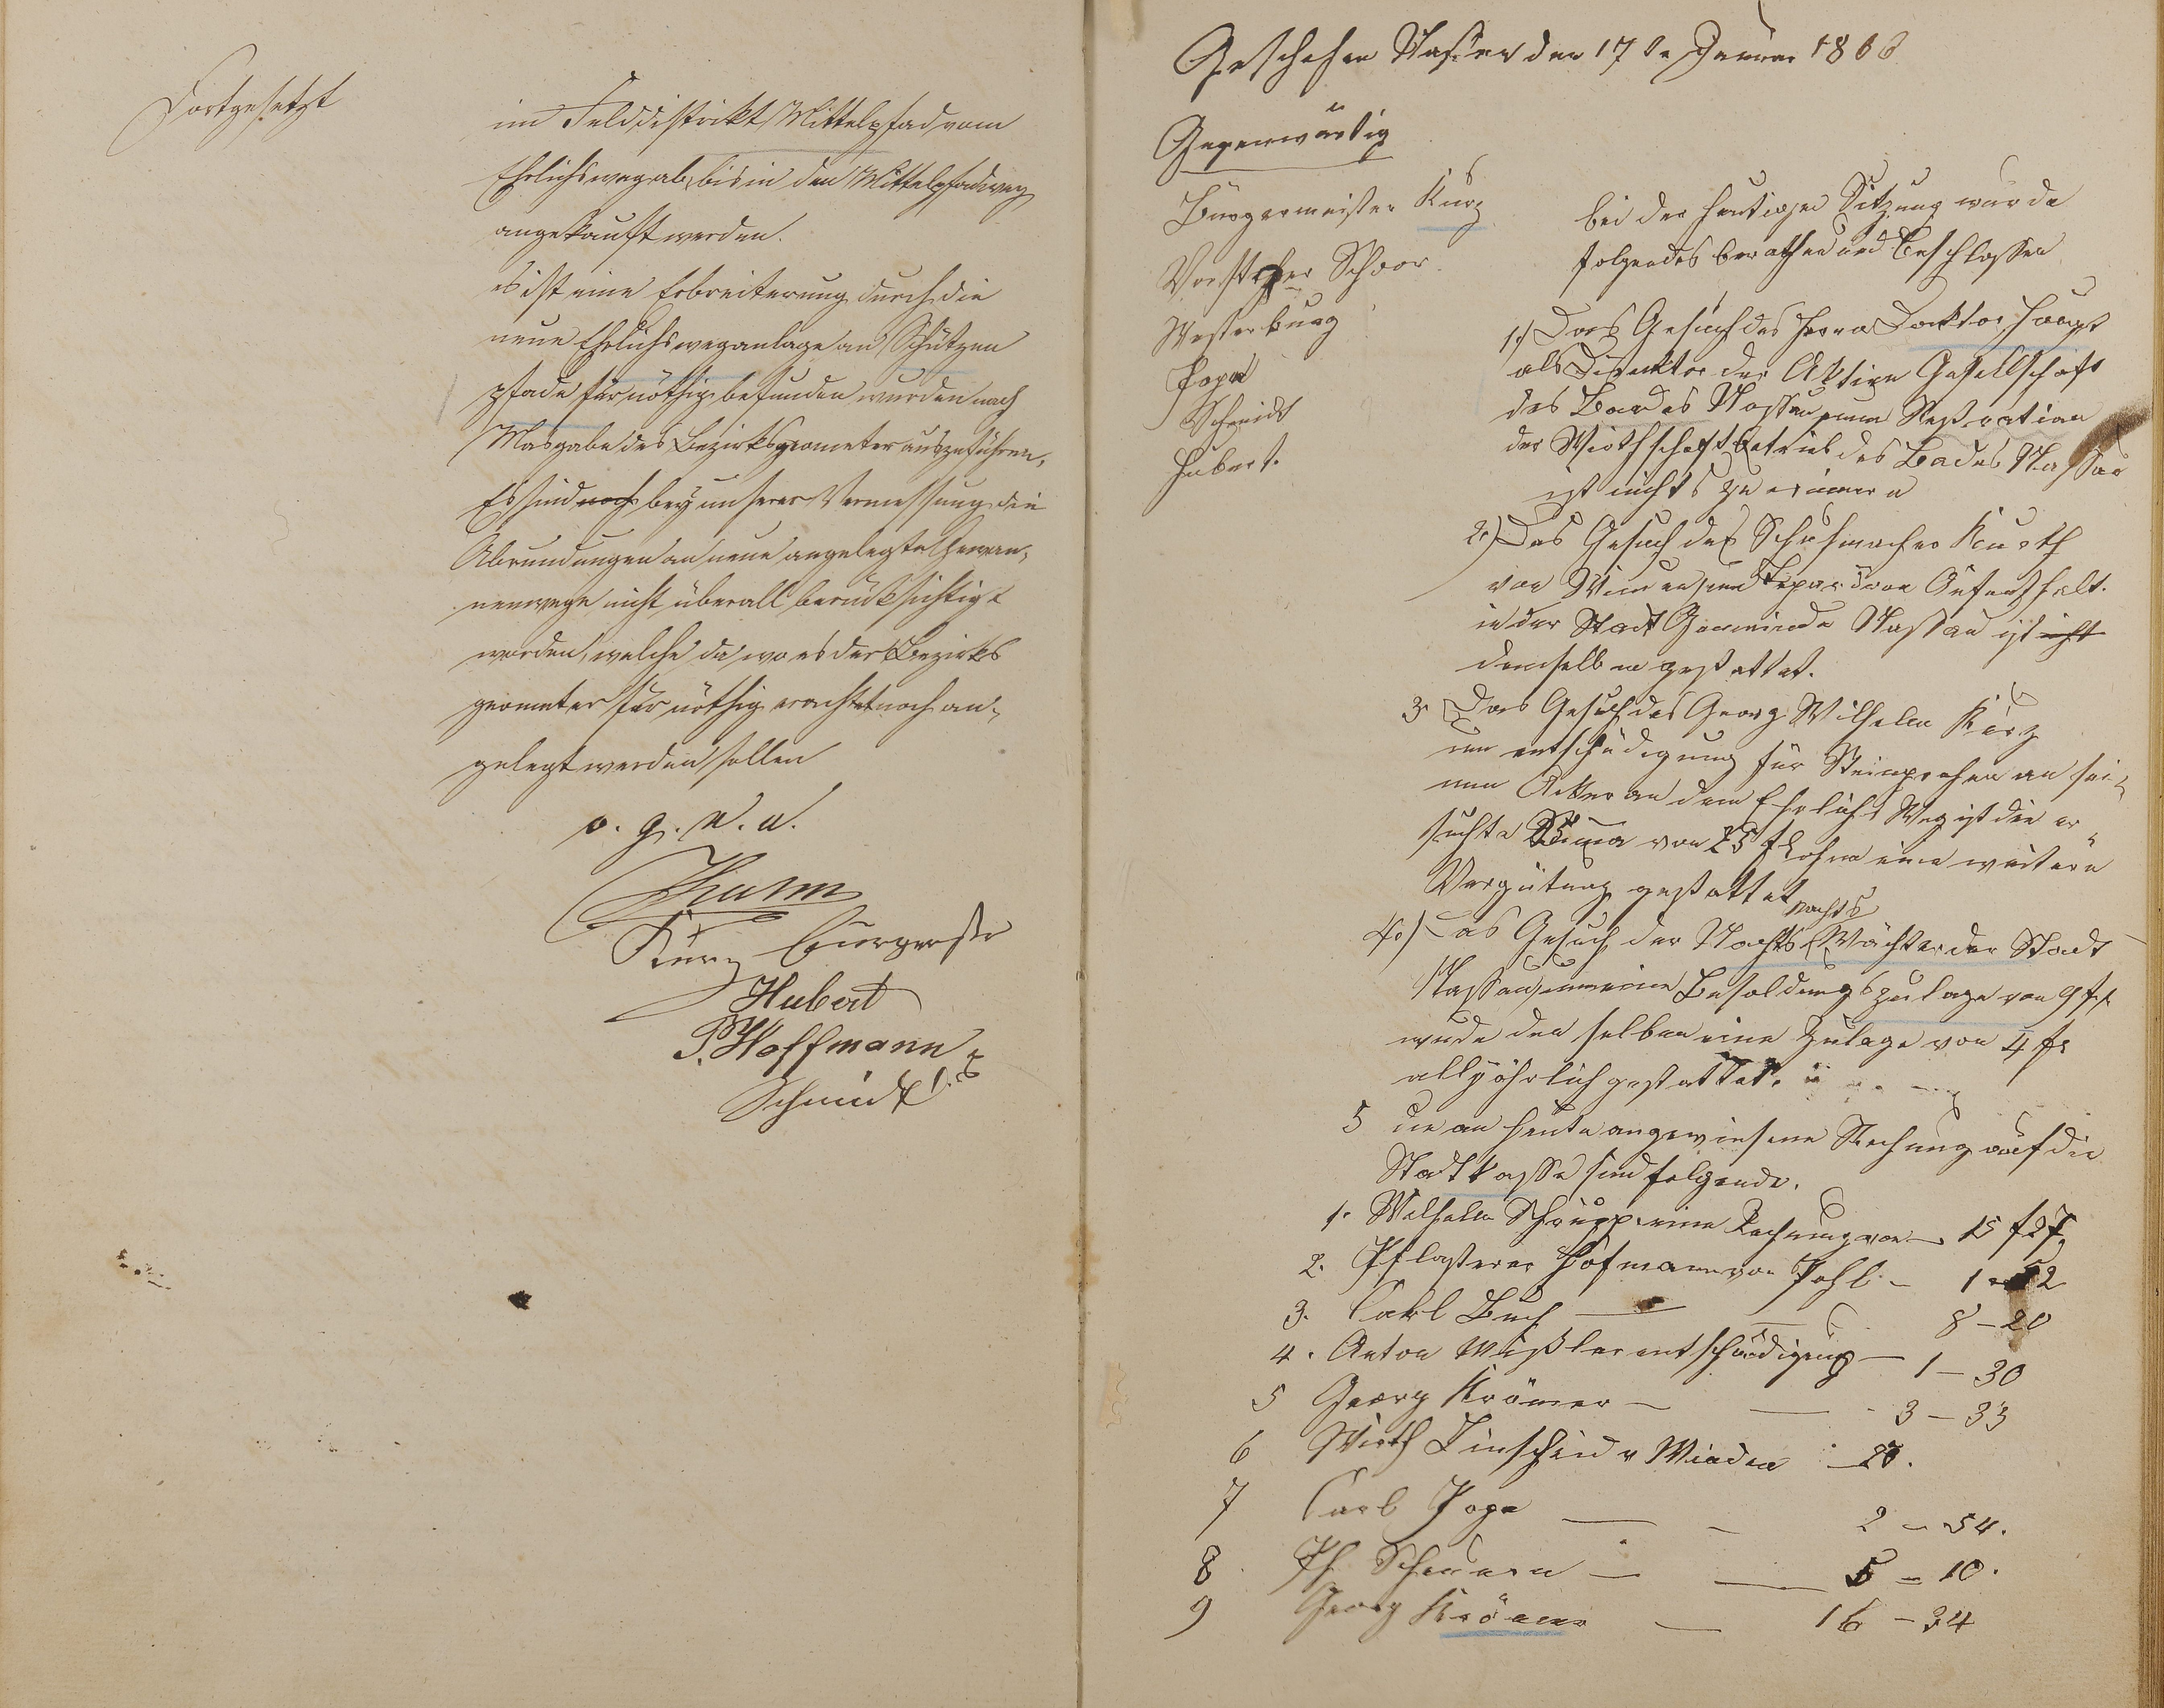 Fortgesetzt
im Felddistrikt Mittelpfad vom
Ehrlichsweg ab, bis in den Mittelpfadweg
angekauft werden.
es ist eine Erbreiterung durch die
neue Ehrlichsweganlage an Schützen
pfade für nöthig befunden wurden nach
Masgabe des Bezirksgeometer auszuführen.
Es sind noch bey unserer Vermessung die
Abrundungen an neue angelegte Gewan-
nenwege nicht überall berücksichtigt
worden, welche da wo es der Bezirks
geometer für nöthig erachtet noch an-
gelegt werden sollen
v. g. u. u.
Kurz Bürgerstr
Hubert
P. Hoffmann
Schmidt
Geschehen Nassau den 17te Januar 1866
Gegenwärtig
Bürgermeister Kurz
Vorsteher Schoor
Westerburg
Pope
Schmidt
Hubert.
bei der heutigen Sitzung wurde
folgendes berathen und beschlossen
1.) Das Gesuch des Herrn Docktor Haupt
als Direktor der Aktien Gesellschaft
des Bades Nassau um
der Wirthschaft Betrieb des Bades Nassau
ist nichts zu erinnern
2.) Das Gesuch des Schuhmacher Kurth
von Winden um Aufenthalt.
in der Stadt Gemeinde Nassau ist
demselben gestattet.
3. Das Gesuch des Georg Wilhelm Kurz
um entschädigung für Steinbrechen an sei-
nem Acker an dem Ehrlichs Weg ist die er-
suchte Suma von 25 fl ohne eine weitere
Vergütung gestattet
4.) Das Gesuch der Nachts Wächter der Stadt
Nassau um eine Besoldungszulage von 9 fl
wude den selben eine Zulage von 4 fl
alljährlich gestattet.
5 die an heute angewiesene Rechnung auf die
Stadtkasse sind folgende.
1. Wilhelm Schrupp eine Rechnung von — 15 f 27
2. Pflasterer Hofmann von Pohl — 1 — 52
3. Carl Buch — 8 — 20
4. Anton Mißler entschädigung — 1 — 30
5 Georg Krämer — 3 — 33
6 Wirth Linscheid v Winden — 28.
7 Carl Pope — 2 — 54.
8 Ph Scheuern — 5 — 10.
9 Georg Krämer — 16 — 34